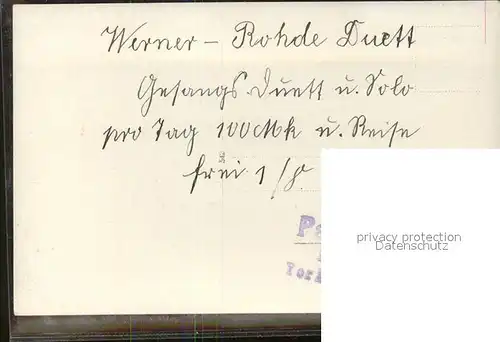 Werner - Rohde Duett
Gesangs Duett u. Solo
pro Tag 100 Mk u. Reise
frei 1/
privacy protection
Datenschutz